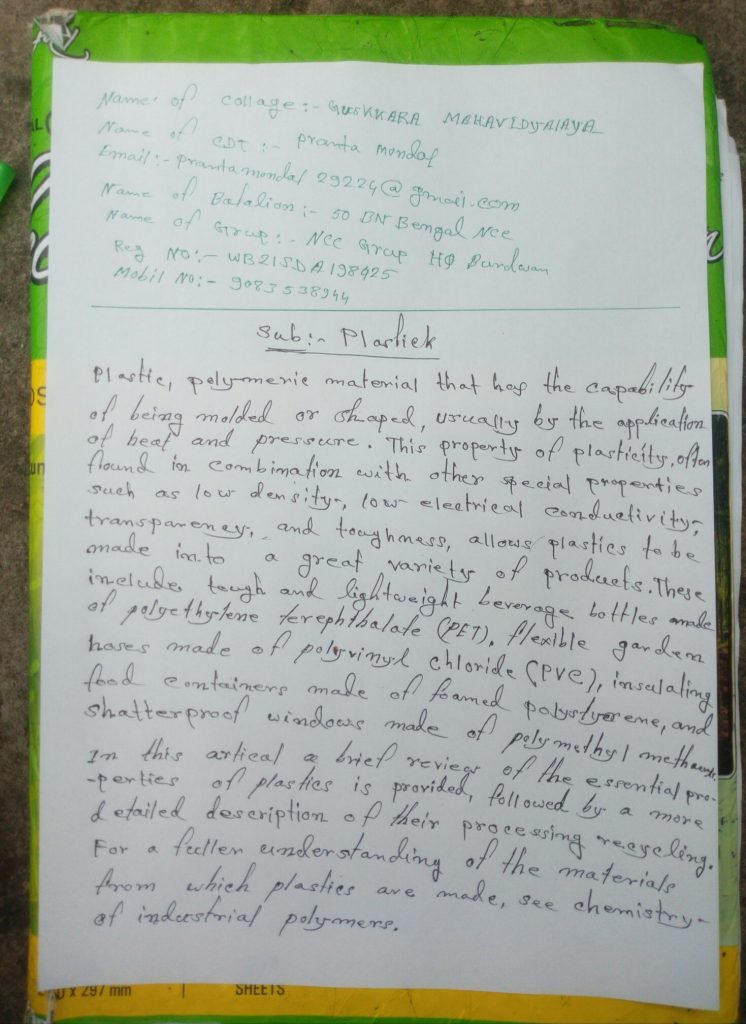 Name: of collage:- GUSKKARA MAHAVIDYALAYA
Name of CDT :- Pranta Mondal
Email:- prantamondal 29224@gmail.com
Name of Batalion:- 50 BN Bengal Ncc
Name of Grup:- Ncc Grup HQ Burdwan
Reg NO:- WB21SDA198425
Mobil NO:- 9083538944
Sub:- Plastick
Plastic, polymeric material that has the capability
of being molded or shaped, usually by the application
of heat and pressure. This property of plasticity, often
found in combination with other special properties
such as low density, low electrical conductivity,
transparency, and toughness, allows plastics to be
made in.to a great variety of products. These
include tough and lightweight beverage bottles made
of polyethylene terephthalate (PET), flexible garden
hoses made of polyvinyl chloride (PVC), insulating
food containers made of foamed polystyrene, and
shatterproof windows made of polymethyl
In this artical a brief review of the essential pro-
-perties of plastics is provided, followed by a more
detailed description of their processing recycling.
For a fuller understanding of the materials
from which plastics are made, see chemistry
of industrial polymers.
x 297 mm
SHEETS